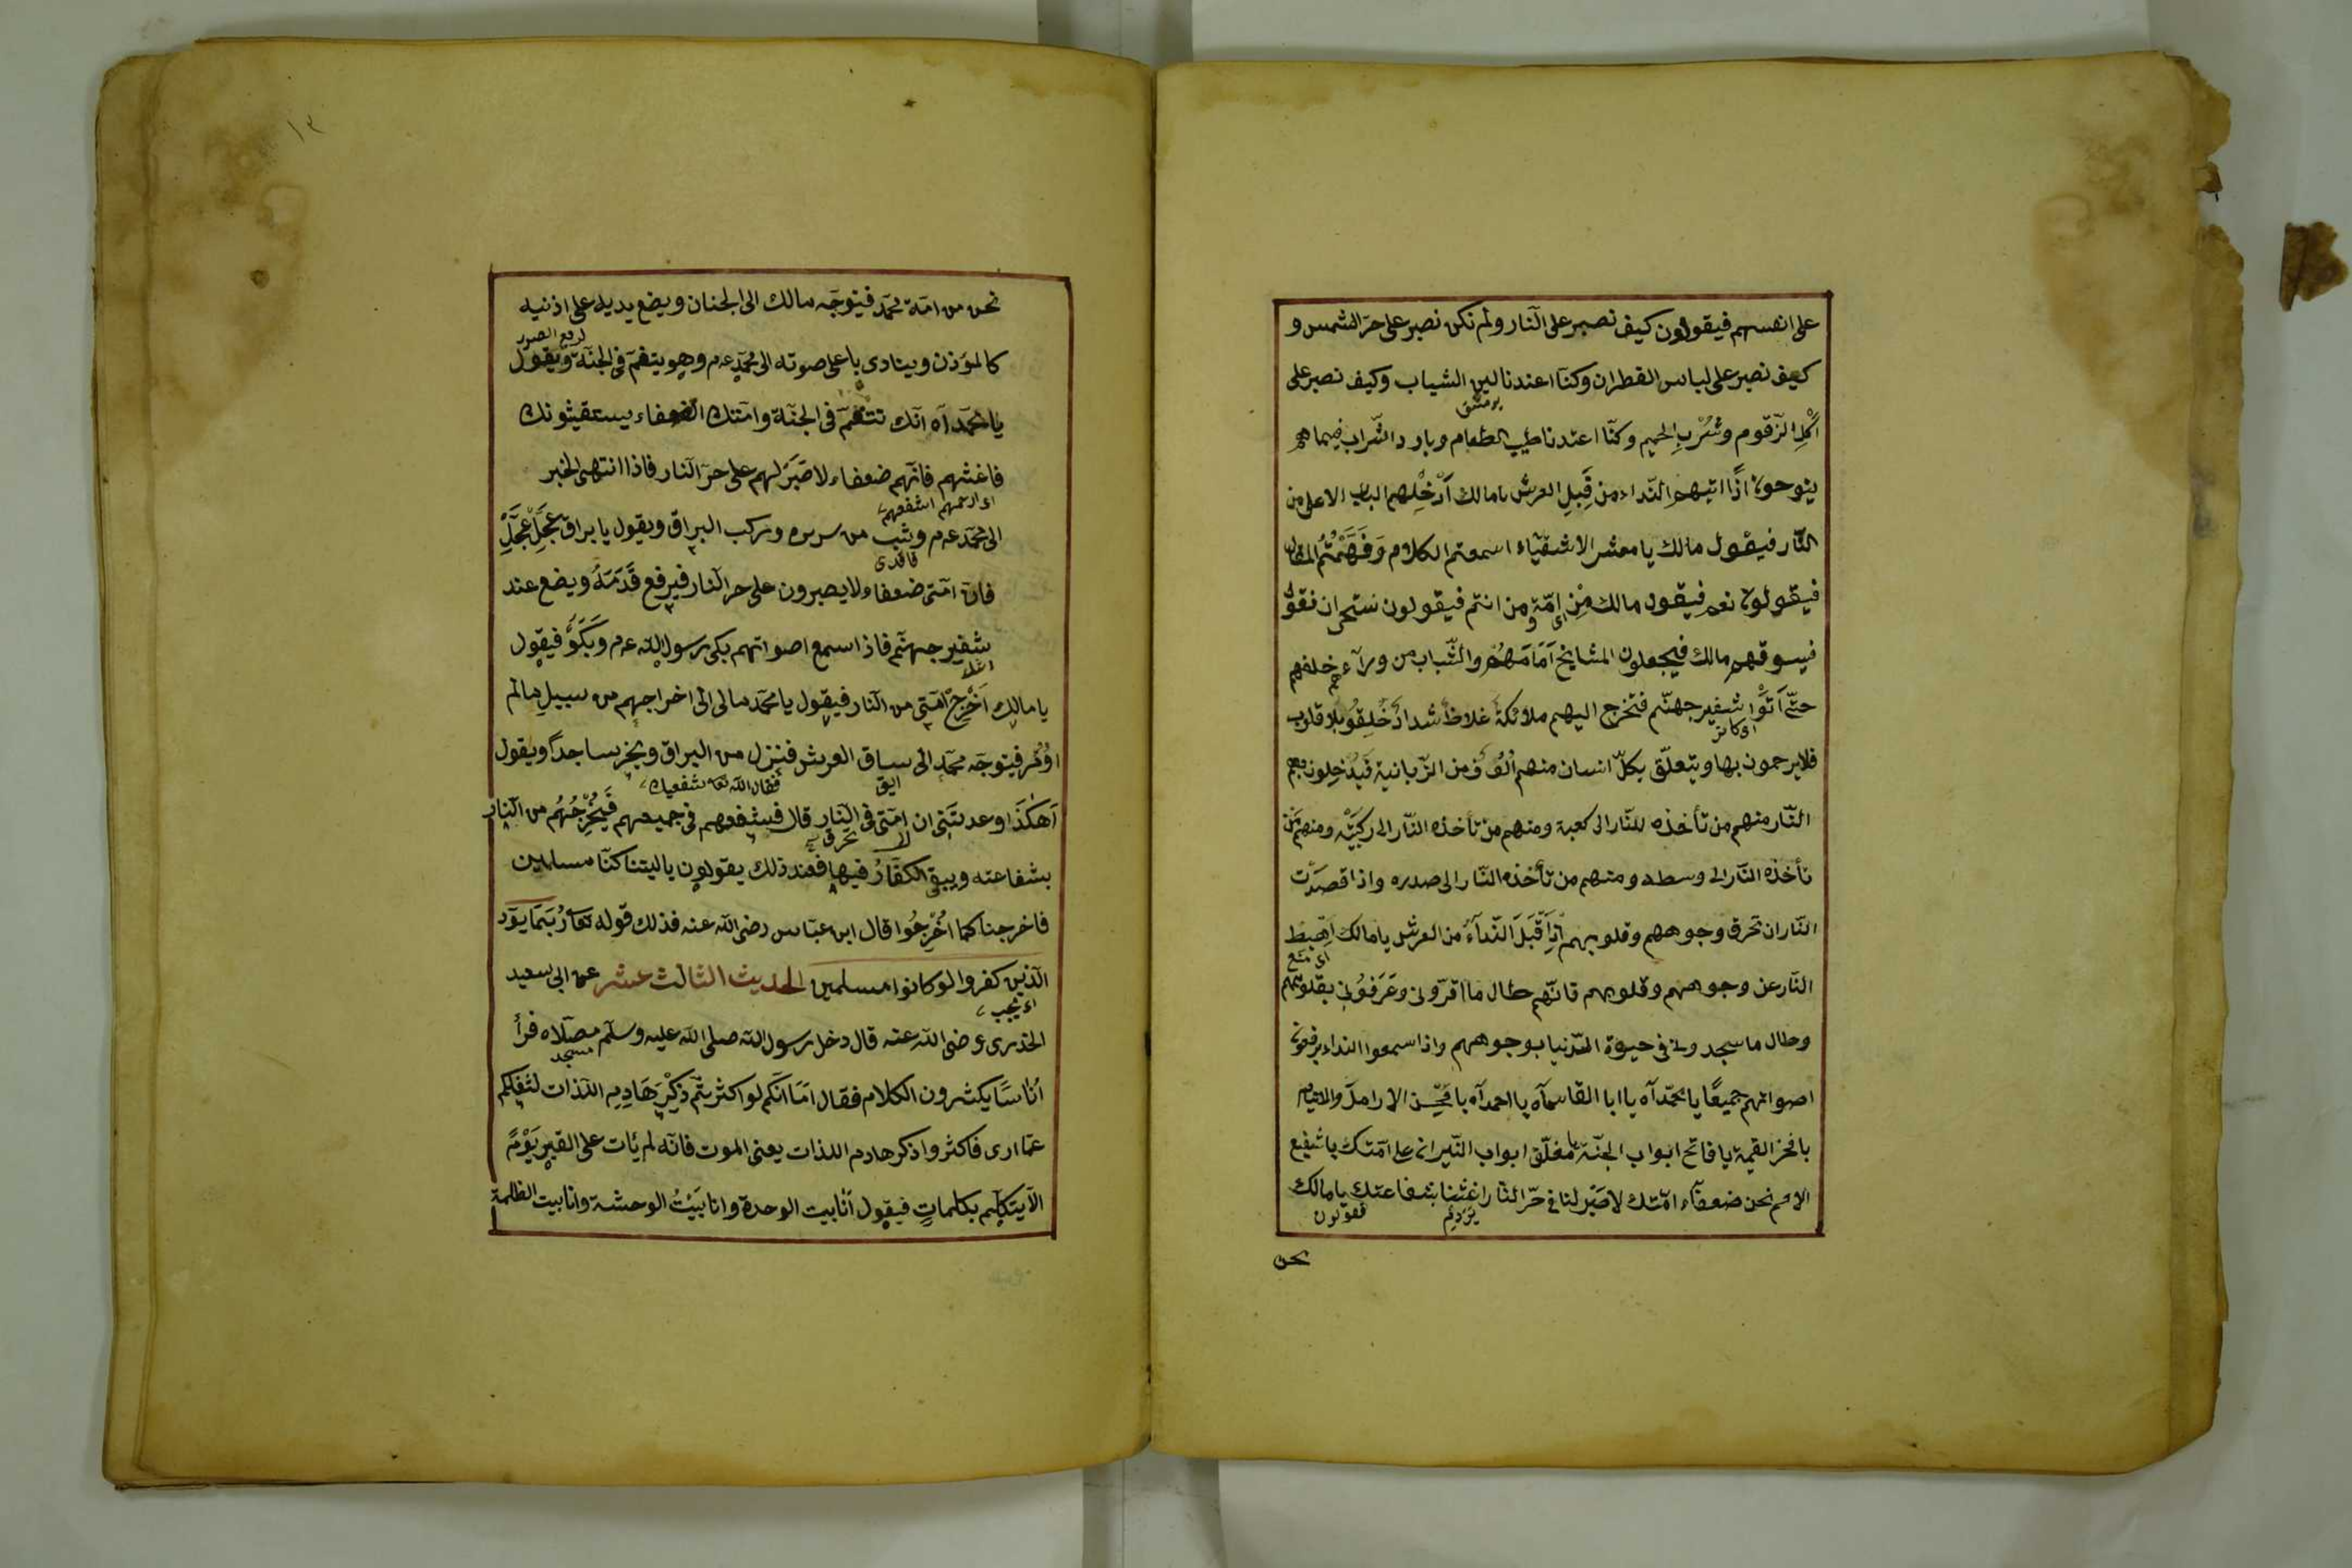 على انفسهم فيقولون كيف نصبر على النار ولم نكن نصبر على حرّ الشمس و
كيف نصبر على لباس القطران وكنّا اعتدنا لين الثياب وكيف نصبر على
اَكْلِ الزّقوم وشُرْبِ الحميم وكنّا اعتدنا طيب الطعام وبارد الشّراب فبيناهم
ينوحون اذًا اتيهم النّداء من قِبَلِ العرش يا مالك اَدْخِلْهم الباب الاعلى من
النّار فيقول مالك يا معشر الاشقيآء اسمعتم الكلام وَفَهَّمْتُمُ المقال
فيقولون نعم فيقول مالك مِن اىّ امّة ومن انتم فيقولون نستحى ان نقول
فيسوقهم مالك فيجعلون المشايخ اَمَامَهُمْ والشّباب من ورآءهم خلفهم
حتّى اَتَوْا شفير جهنّم فتخرج اليهم ملائكةٌ غلاظٌ شدادٌ خُلِقُو بلا قلوب
فلا يرحمون بها ويتعلّق بكلّ انسان منهم اُلُوف من الزّبانية فَيُدْخِلونهم
النّار منهم من تأخذه النّار الى كعبه ومنهم من تأخذه النّار الى ركبتيه ومنهم من
تأخذه النّار الى وسطه ومنهم من تأخذه النّار الى صدره واذا قصدت
النّار ان تحرق وجوههم وقلوبهم اِذَا قْبَلَ النّدآءُ من العرش يا مالك اِهْبِط
اى منع
النّار عن وجوههم وقلوبهم فانّهم طال ما اقرّونى وعَرَفُونى بقلوبهم
وطال ما سجدونى فى حيوة الدّنيا بوجوههم واذا سمعوا النداء يرفعون
اصواتهم جميعًا يا محمّدآه يا ابا القاسمآه يا احمدآه يا محسن الارامل والايتام
يا فخر القيمة يا فاتح ابواب الجنّة يا مغلّق ابواب النّيران على امّتك يا شفيع
الامم نحن ضعفآء امّتك لا صَبْرَ لنا فى حرّ النّار اغثنا بشفاعتك يا مالك
فقولون
نحن
١٣
نحن من امّة محمّد فيتوجّه مالك الى الجنان ويضع يديه على اذنيه
لرفع الصور
كالمؤذن وينادى باعلى صوته الى محمّد عم وهو يتنعّم فى الجنّة ويقول
يا محمّدآه انّك تتنعّم فى الجنّة وامّتك الضعفاء يستغيثونك
فاغثهم فانّهم ضعفاء لا صَبْرَ لهم على حرّ النار فاذا انتهى الخبر
اى ارحمهم اشفعهم
الى محمّد عم وثب من سريره وركب البراق ويقول يا براق عَجِّلْ عَجِّلْ
فانّ امّتى ضعفاء ولا يصبرون على حر النار فيرفع قَدَمَهُ ويضع عند
شفير جهنّم فاذا سمع اصواتهم بكى رسول الله عم وَبَكَوْ فيقول
يا مالك اَخْرِجْ امّتى من النار فيقول يا محمّد مالى الى اخراجهم من سبيلٍ مالم
اُوُمر فيتوجّه محمّد الى ساق العرش فنزل من البراق ويخرّ ساجداً ويقول
فقال الله تعا شفعيك
اَهٰكَذَا وعدتَنى ان امّتى فى النار قال فشفعهم فى جميعهم فَيُخْرِجُهُم من النار
لا تحرق
بشفاعته ويبقى الكفّارُ فيها فعند ذلك يقولون يا ليتنا كنّا مسلمين
فاخرجنا كما اُخْرِجُوا قال ابن عبّاس رضى الله عنه فذلك قوله تعا رُبَمَا يوَد
الّذين كفروا لو كانوا مسلمين الحديث الثالث عشر عن ابى سعيد
الخدرى رضى الله عنه قال دخل رسول الله صلى الله عليه وسلّم مصلّاه فرأ
مسجد
اُناسًا يكثرون الكلام فقال اَمَا انّكم لو اكثرتم ذِكْرَ هَادِمِ اللّذات لشغلكم
عمّا ارى فاكثروا ذكر هادم اللذات يعنى الموت فانّه لم يأت على القبر يَوْمٌ
الّا يتكلّم بكلماتٍ فيقول اَنَا بيت الوحدة وانا بَيْتُ الوحشة وانا بيت الظلمة